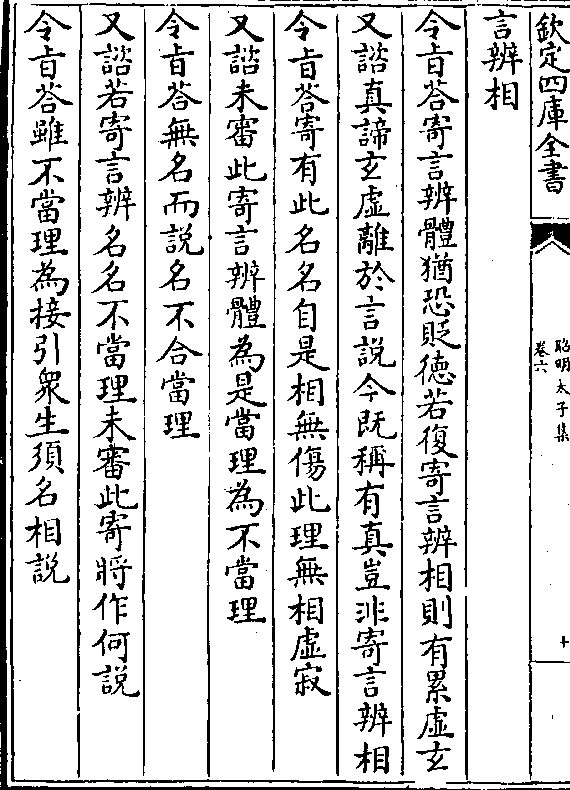 欽定四庫全書
昭明太子集
卷六
十
言辨相
令㫖荅寄言辨體猶恐貶德若復寄言辨相則有累虛玄
又諮真諦玄虛離於言說今既稱有真豈非寄言辨相
令㫖荅寄有此名名自是相無傷此理無相虛寂
又諮未審此寄言辨體為是當理為不當理
令㫖荅無名而說名不合當理
又諮若寄言辨名名不當理未審此寄將作何說
令㫖荅雖不當理為接引衆生須名相說